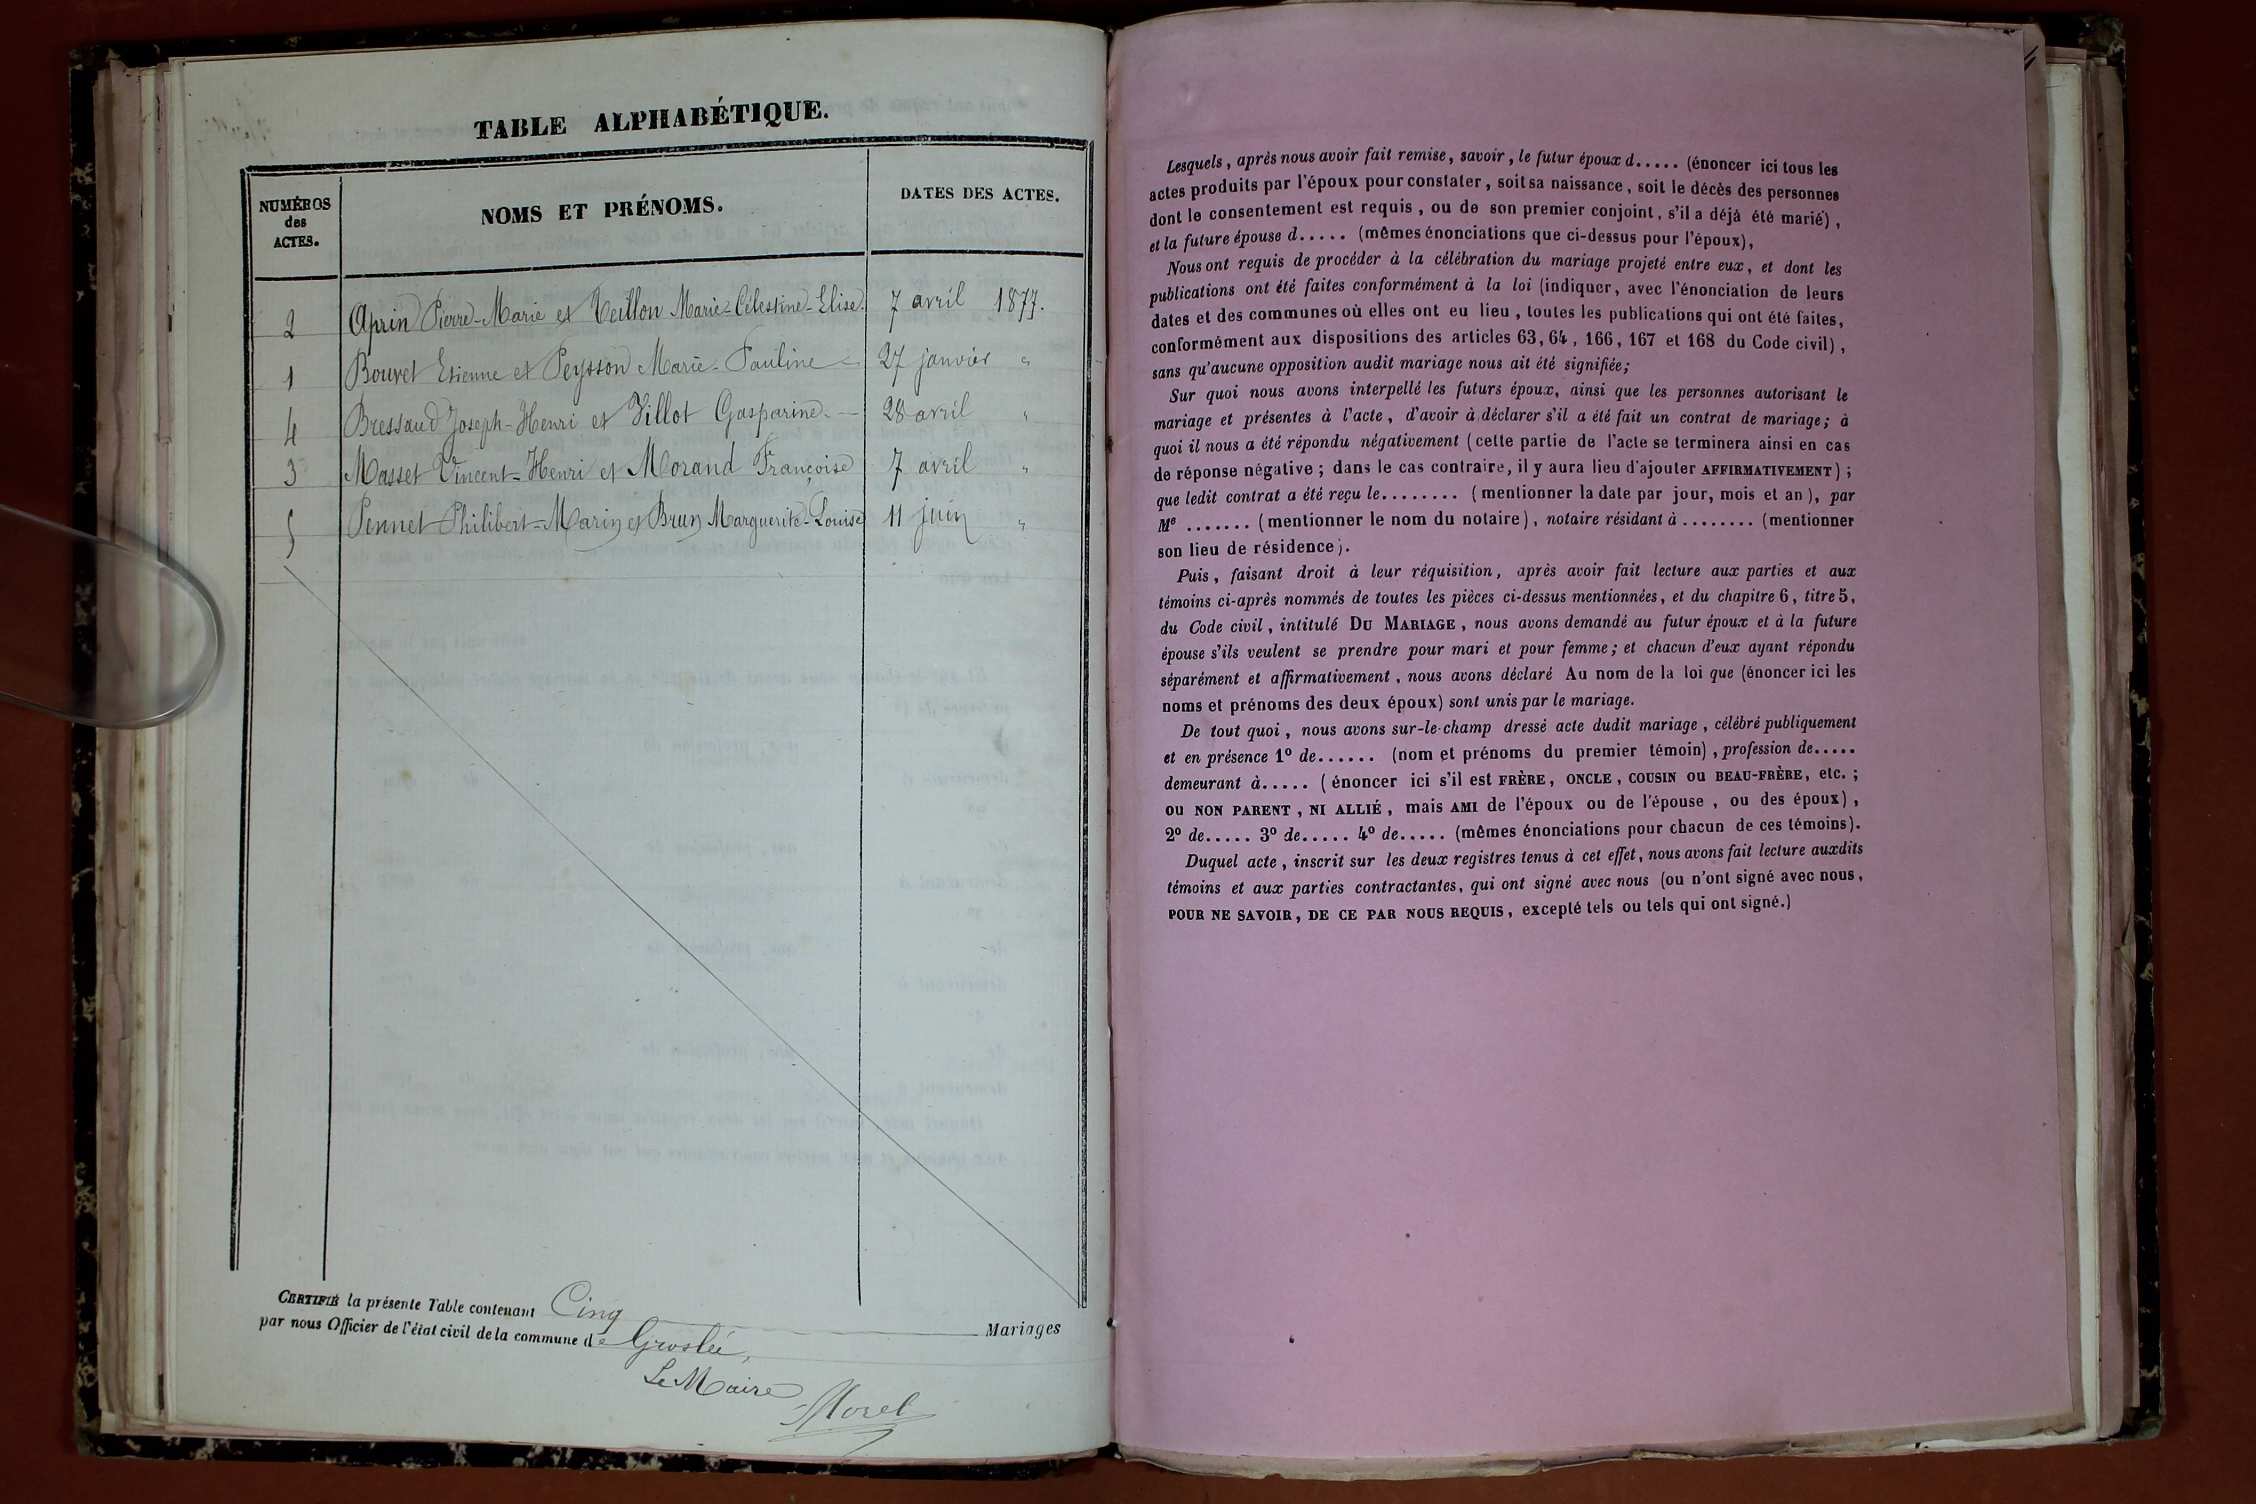 TABLE ALPHABÉTIQUE.
NUMÉROS
des
ACTES.
NOMS ET PRÉNOMS.
DATES DES ACTES.
2 Aprin Pierre-Marie et Veillon Marie-Célestine-Elise. 7 avril 1877.
1 Bouvet Etienne et Peysson Marie-Pauline 27 janvier "
4 Bressaud Joseph-Henri et Villot Gasparine. — 28 avril "
3 Masset Vincent-Henri et Morand Françoise 7 avril "
5 Pennet Philibert-Marin et Brun Marguerite-Louise 11 juin "
CERTIFIÉ la présente Table contenant Cinq Mariages
par nous Officier de l'état civil de la commune de Groslée,
Le Maire
Morel
Lesquels, après nous avoir fait remise, savoir, le futur époux d..... (énoncer ici tous les
actes produits par l'époux pour constater, soit sa naissance, soit le décès des personnes
dont le consentement est requis, ou de son premier conjoint, s'il a déjà été marié),
et la future épouse d..... (mêmes énonciations que ci-dessus pour l'époux),
Nous ont requis de procéder à la célébration du mariage projeté entre eux, et dont les
publications ont été faites conformément à la loi (indiquer, avec l'énonciation de leurs
dates et des communes où elles ont eu lieu, toutes les publications qui ont été faites,
conformément aux dispositions des articles 63, 64, 166, 167 et 168 du Code civil),
sans qu'aucune opposition audit mariage nous ait été signifiée;
Sur quoi nous avons interpellé les futurs époux, ainsi que les personnes autorisant le
mariage et présentes à l'acte, d'avoir à déclarer s'il a été fait un contrat de mariage; à
quoi il nous a été répondu négativement (cette partie de l'acte se terminera ainsi en cas
de réponse négative; dans le cas contraire, il y aura lieu d'ajouter AFFIRMATIVEMENT);
que ledit contrat a été reçu le........ (mentionner la date par jour, mois et an), par
Me ....... (mentionner le nom du notaire), notaire résidant à ........ (mentionner
son lieu de résidence).
Puis, faisant droit à leur réquisition, après avoir fait lecture aux parties et aux
témoins ci-après nommés de toutes les pièces ci-dessus mentionnées, et du chapitre 6, titre 5,
du Code civil, intitulé DU MARIAGE, nous avons demandé au futur époux et à la future
épouse s'ils veulent se prendre pour mari et pour femme; et chacun d'eux ayant répondu
séparément et affirmativement, nous avons déclaré Au nom de la loi que (énoncer ici les
noms et prénoms des deux époux) sont unis par le mariage.
De tout quoi, nous avons sur-le-champ dressé acte dudit mariage, célébré publiquement
et en présence 1º de...... (nom et prénoms du premier témoin), profession de.....
demeurant à..... (énoncer ici s'il est FRÈRE, ONCLE, COUSIN OU BEAU-FRÈRE, etc.;
OU NON PARENT, NI ALLIÉ, mais AMI de l'époux ou de l'épouse, ou des époux),
2º de..... 3º de..... 4º de..... (mêmes énonciations pour chacun de ces témoins).
Duquel acte, inscrit sur les deux registres tenus à cet effet, nous avons fait lecture auxdits
témoins et aux parties contractantes, qui ont signé avec nous (ou n'ont signé avec nous,
POUR NE SAVOIR, DE CE PAR NOUS REQUIS, excepté tels ou tels qui ont signé.)